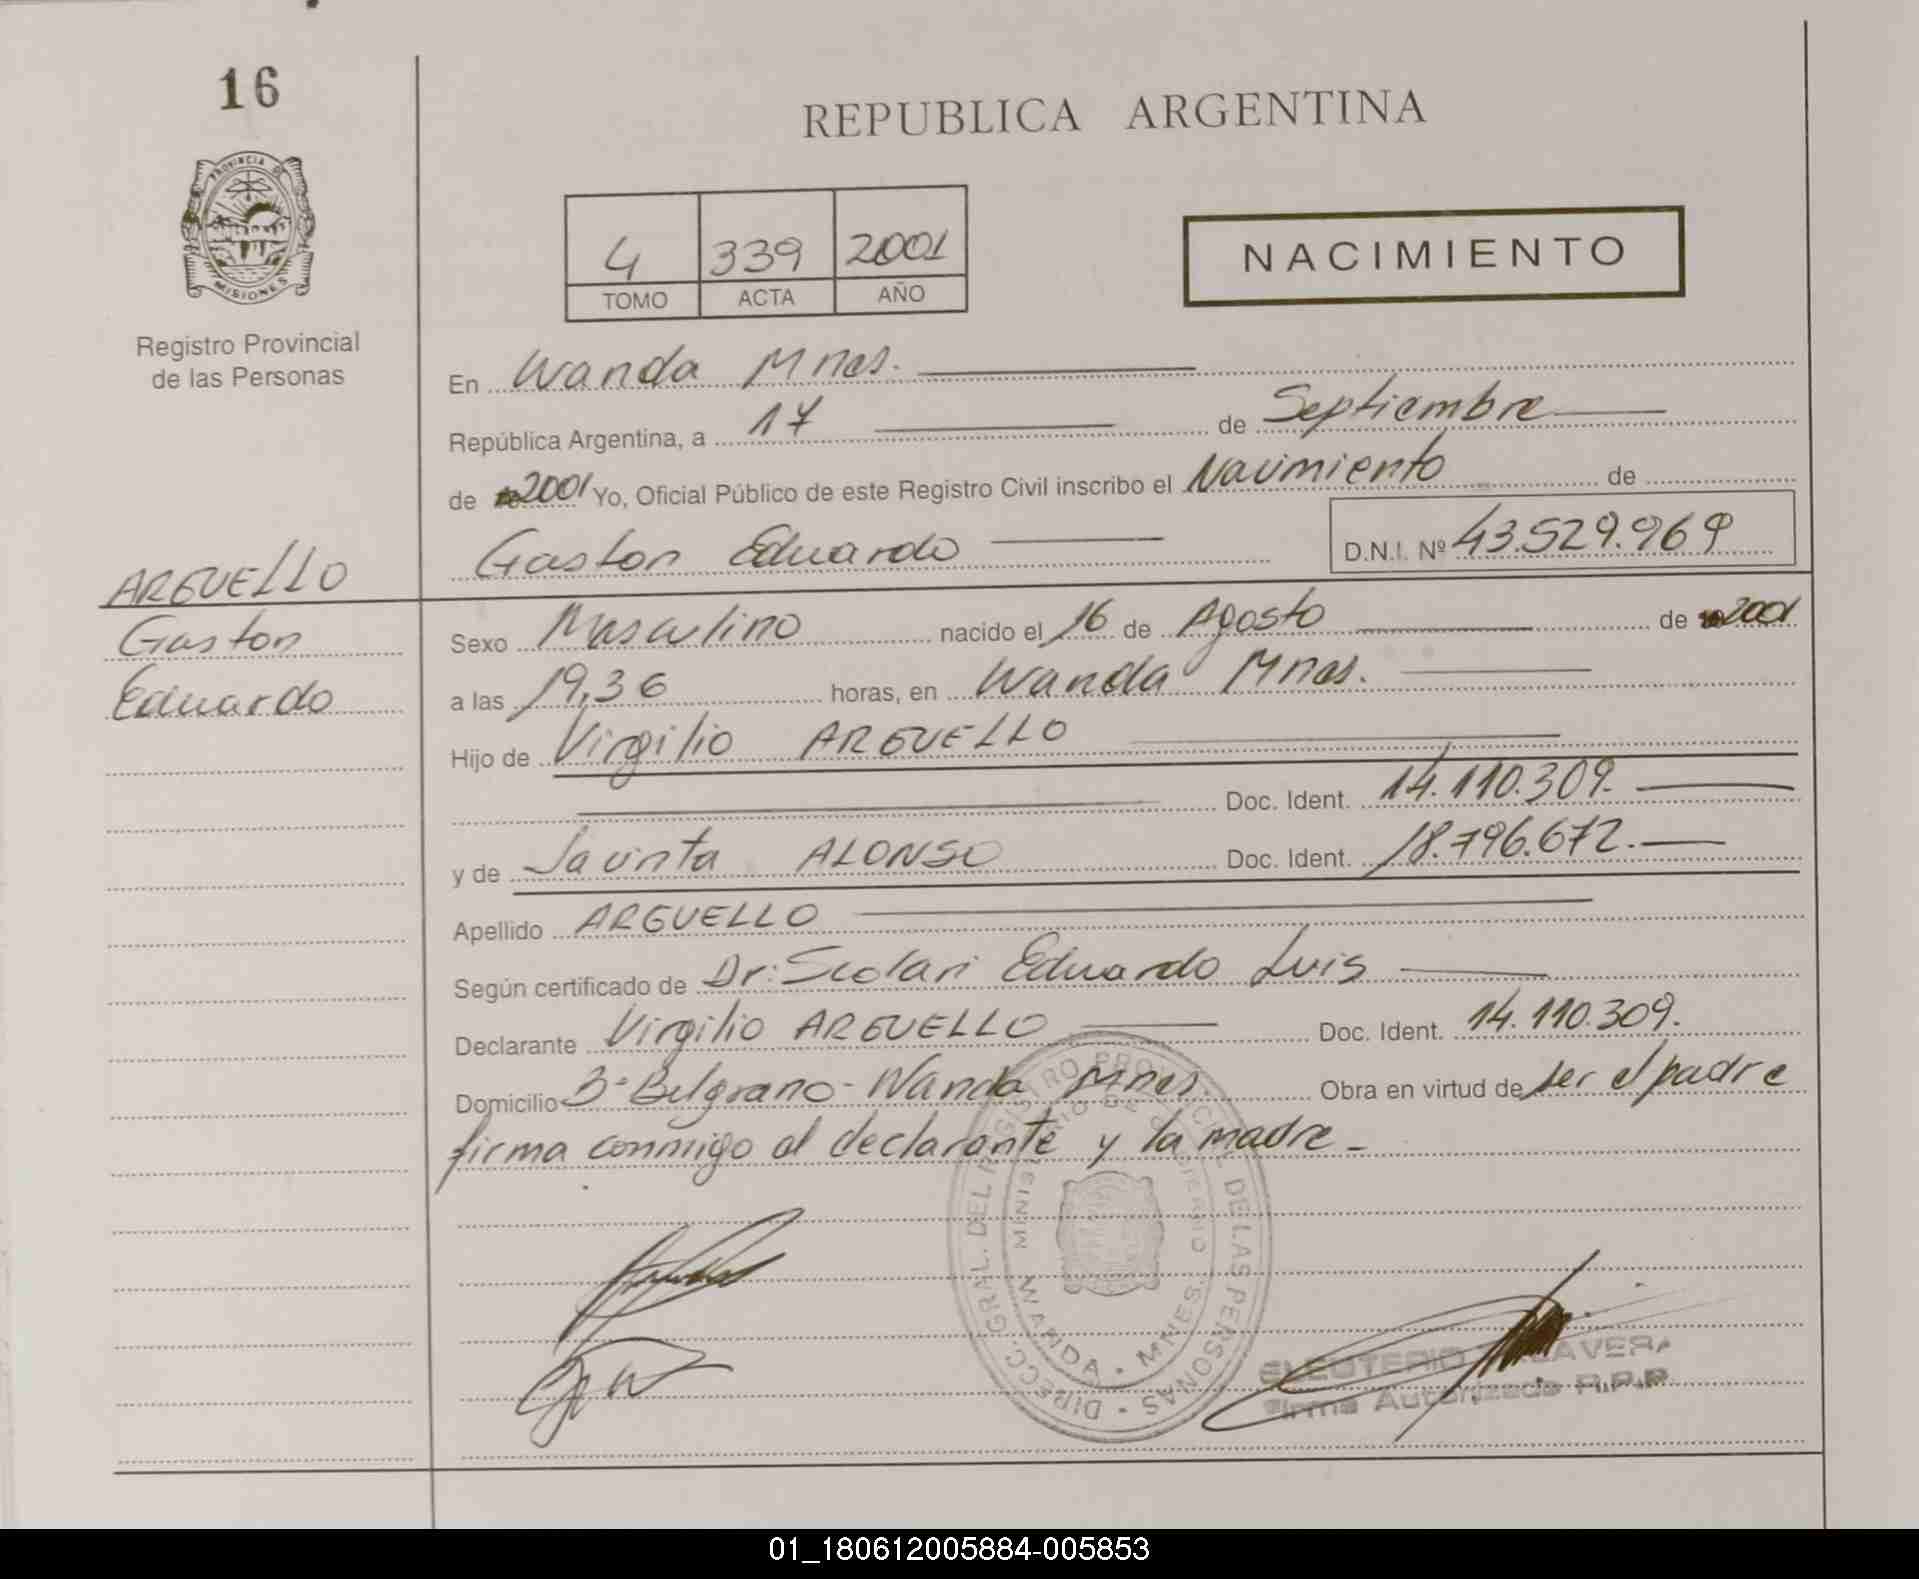 16
REPUBLICA ARGENTINA
PROVINCIA DE
MISIONES
Registro Provincial
de las Personas
4 339 2001
TOMO ACTA AÑO
NACIMIENTO
En Wanda Mnes.
República Argentina, a 17 de Septiembre
de 2001 Yo, Oficial Público de este Registro Civil inscribo el Nacimiento de
Gaston Eduardo D.N.I. Nº 43.529.969
ARGUELLO
Gaston
Eduardo
Sexo Masculino nacido el 16 de Agosto de 2001
a las 19,36 horas, en Wanda Mnes.
Hijo de Virgilio ARGUELLO
Doc. Ident. 14.110.309.
y de Jacinta ALONSO Doc. Ident. 18.796.672.
Apellido ARGUELLO
Según certificado de Dr: Scolari Eduardo Luis
Declarante Virgilio ARGUELLO Doc. Ident. 14.110.309.
Domicilio Bº Belgrano - Wanda Mnes. Obra en virtud de ser el padre
firma conmigo el declarante y la madre -
DIRECC. GRAL. DEL REGISTRO PROVINCIAL DE LAS PERSONAS
MINISTERIO DE GOBIERNO
WANDA - MNES.
ELEUTERIO TALAVERA
Firma Autorizada R.P.P
01_180612005884-005853